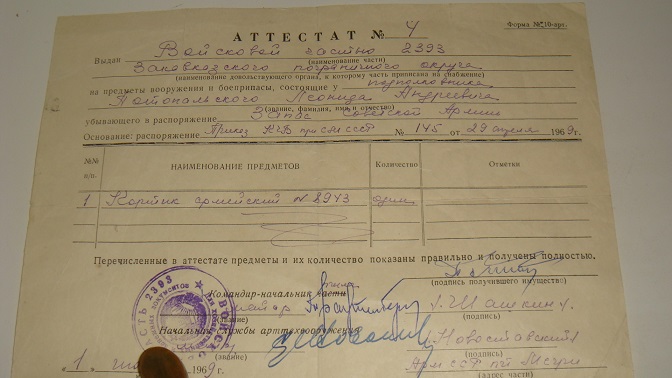 АТТЕСТАТ № 4
Форма № 10-арт.
Выдан Войсковой частью 2393
(наименование части)
Закавказского пограничного округа
(наименование довольствующего органа, к которому часть приписана на снабжение)
на предметы вооружения и боеприпасы, состоящие у подполковника
Топольского Леонида Андреевича
(звание, фамилия, имя и отчество)
убывающего в распоряжение Запас Советской Армии
Основание: распоряжение Приказ КГБ при СМ СССР № 145 от 29 апреля 1969 г.
№№ п/п. НАИМЕНОВАНИЕ ПРЕДМЕТОВ Количество Отметки
1 Кортик армейский № 8943 один
Перечисленные в аттестате предметы и их количество показаны правильно и получены полностью.
(подпись получившего имущество)
Командир-начальник части
(звание) (подпись)
Начальник службы артвооружения
(звание) (подпись)
« 1 » 1969 г. Арм ССР Мегри
(адрес части)
ЧАСТЬ 2393